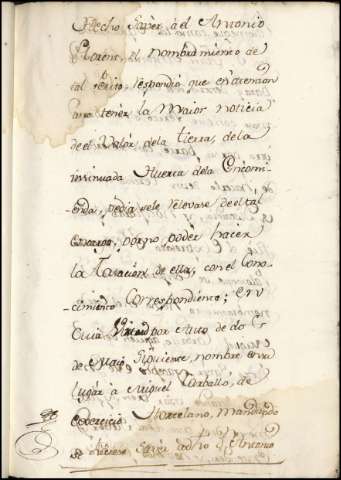 Hecho Saver àel Antonio
Llorens, el nombramiento de
tal Perito, respondio que en atencion
à no tener la Maior noticia
de el Valor, de la tierra, de la
ressinuada Huerta de la Encomi-
-enda, pedia se le relevase de el tal
encargo, por no poder hacer
la Tasacion de ella, con el Cono-
-cimiento Correspondiente; en
Cuia por Auto de dos
de Maio Siguiente, nombrè en su
lugar à Miguel Carballo, de
Exercicio Hortelano, mandando
se hiciese Saver a dicho Antonio